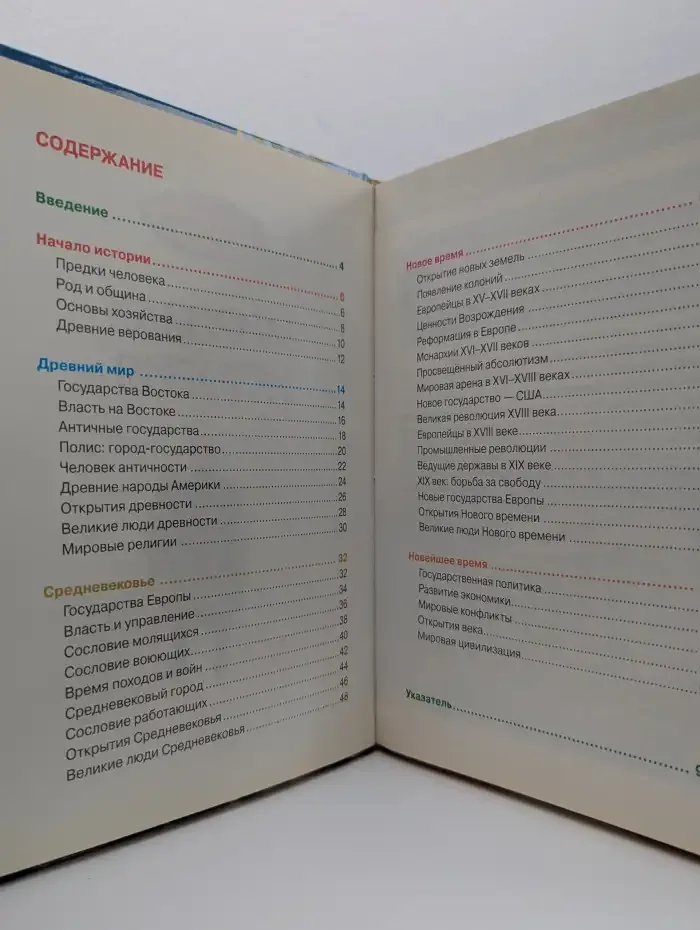 СОДЕРЖАНИЕ
Введение 4
Начало истории 6
Предки человека 6
Род и община 8
Основы хозяйства 10
Древние верования 12
Древний мир 14
Государства Востока 14
Власть на Востоке 16
Античные государства 18
Полис: город-государство 20
Человек античности 22
Древние народы Америки 24
Открытия древности 26
Великие люди древности 28
Мировые религии 30
Средневековье 32
Государства Европы 32
Власть и управление 34
Сословие молящихся 36
Сословие воюющих 38
Время походов и войн 40
Средневековый город 42
Сословие работающих 44
Открытия Средневековья 46
Великие люди Средневековья 48
Новое время
Открытие новых земель
Появление колоний
Европейцы в XV–XVII веках
Ценности Возрождения
Реформация в Европе
Монархии XVI–XVII веков
Просвещённый абсолютизм
Мировая арена в XVI–XVIII веках
Новое государство — США
Великая революция XVIII века
Европейцы в XVIII веке
Промышленные революции
Ведущие державы в XIX веке
XIX век: борьба за свободу
Новые государства Европы
Открытия Нового времени
Великие люди Нового времени
Новейшее время
Государственная политика
Развитие экономики
Мировые конфликты
Открытия века
Мировая цивилизация
Указатель